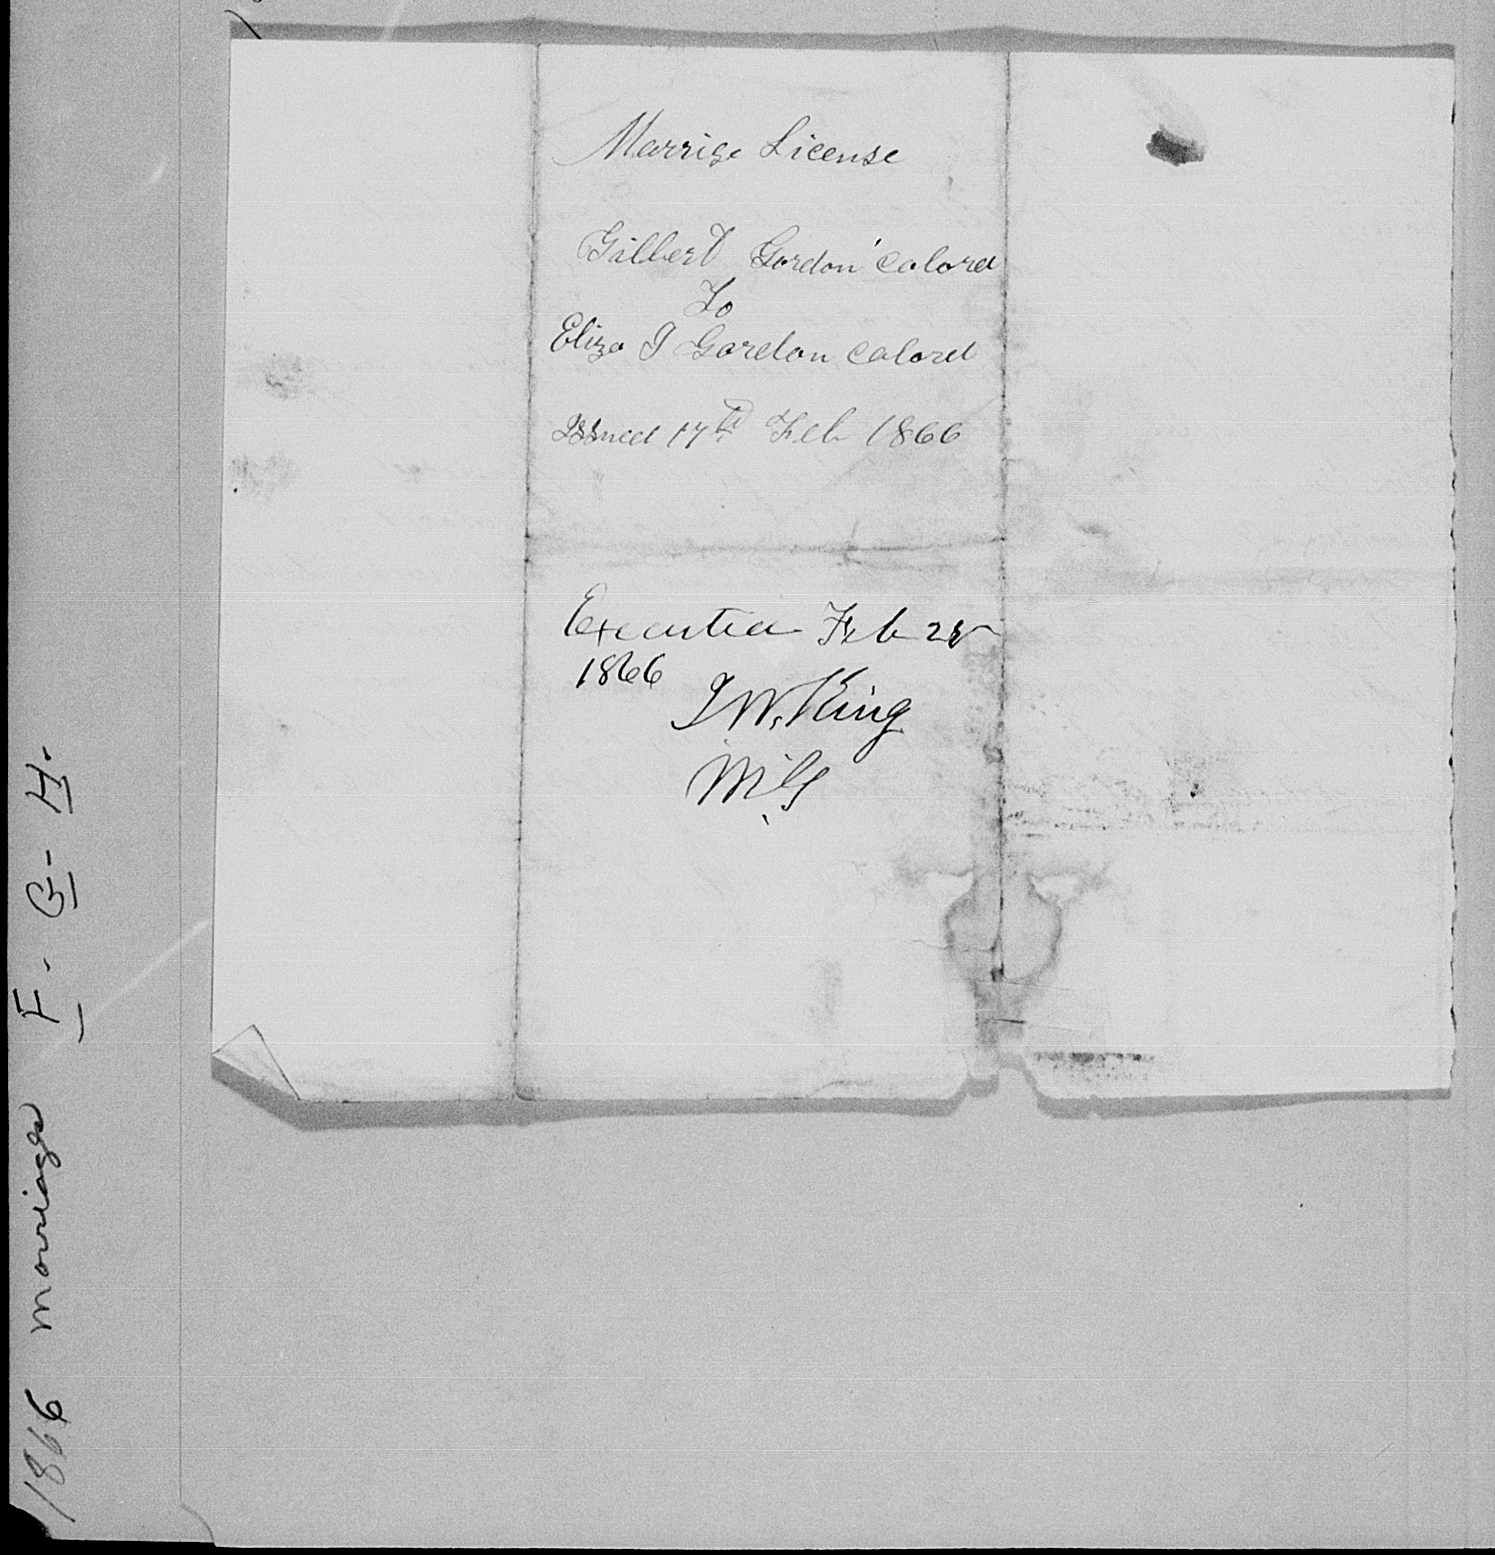 Marrige License
Gilbert Gordon Colored
To
Eliza J Gordon Colored
Issued 17th Feb 1866
Executed Feb
1866
J W. King
M. G
1866 marriages F. G- H.